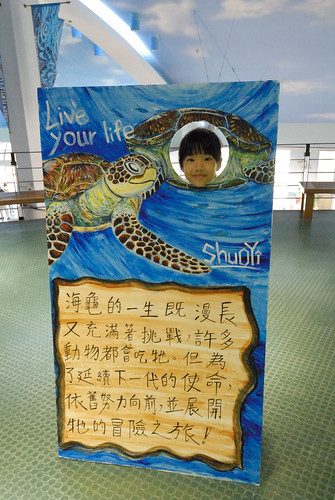 Live
your life
ShunYi
海龜的一生既漫長
又充滿著挑戰,許多
動物都會吃牠。但為
了延續下一代的使命,
依舊努力向前,並展開
牠的冒險之旅!